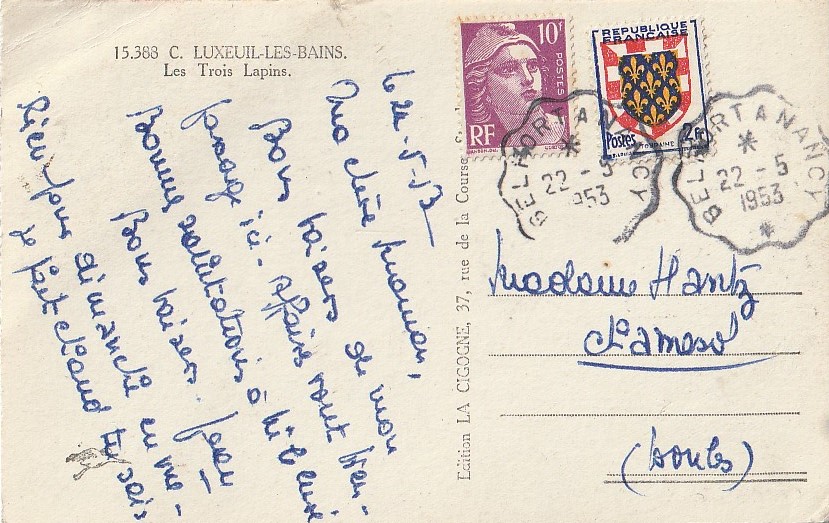 15.388 C. LUXEUIL-LES-BAINS.
Les Trois Lapins.
Le 21-5-53
Ma chère maman,
Bons baisers de mon
passage ici. affaires vont bien.
Bonnes salutations à
Bons baisers. Jean
Rien pour dimanche en me-
je fait chaud tu sais
Edition LA CIGOGNE, 37, rue de la Course
10F
POSTES
RF
REPUBLIQUE
FRANÇAISE
Postes
2F
TOURAINE
BELFORT A NANCY
22 - 5
1953
BELFORT A NANCY
22 - 5
1953
Madame Hantz
Chamesol
(Doubs)